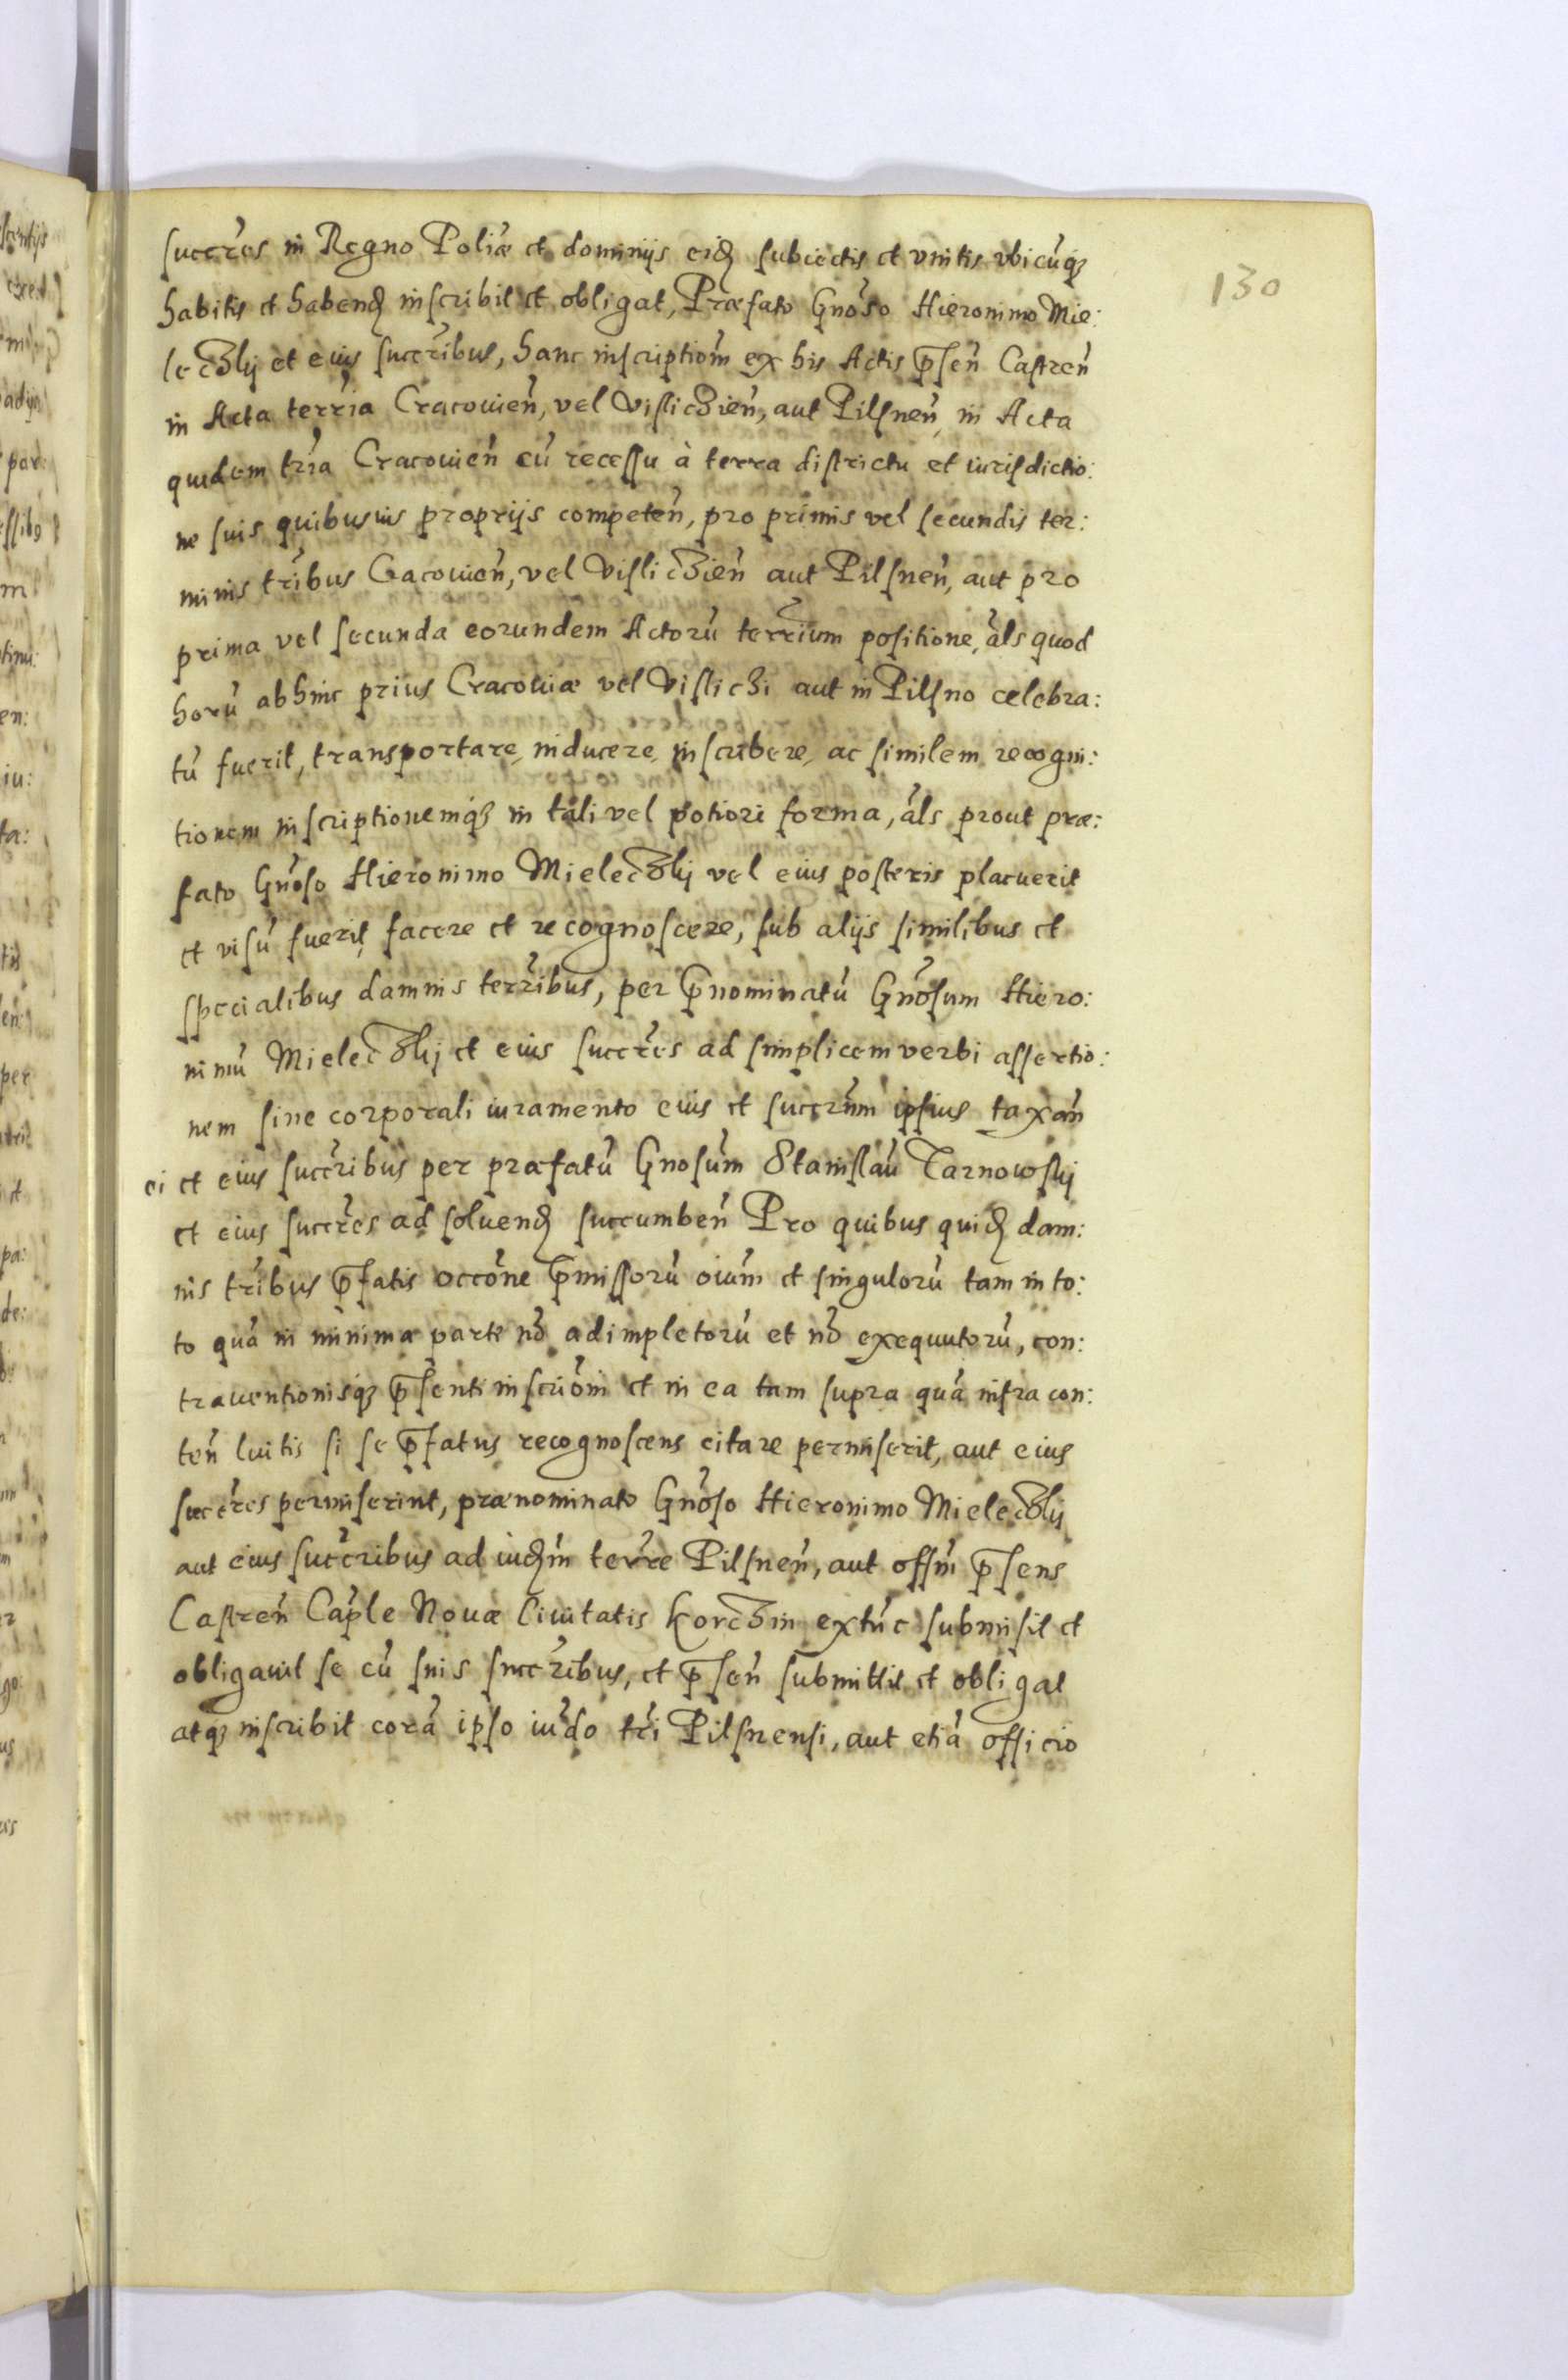 130
succ̃res in Regno Poliæ et dominijs eid̃ subiectis et vnitis vbicũq̃
habitis et habend̃ inscribit et obligat, Præfato Gnõso Hieronimo Mie:
leczkij et eius succ̃ribus, hanc inscriptiom̃ ex his Actis p̃sen̄ Castren̄
in Acta terr̃ia Cracouien̄, vel Vislicien̄, aut Pilsnen̄, in Acta
quidem tr̃ia Cracouien̄ cũ recessu à terra districtu et iurisdictio:
ne suis quibusuis proprijs competen̄, pro primis vel secundis ter:
minis tr̃ibus Cracouien̄, vel Vislicien̄ aut Pilsnen̄, aut pro
prima vel secunda eorundem Actorũ terr̃ium positione, als̃ quod
horũ abhinc prius Cracouiæ vel Vislici aut in Pilsno celebra:
tũ fuerit, transportare, inducere, inscribere, ac similem recogni:
tionem inscriptionemq̃ in tali vel potiori forma, als̃ prout præ:
fato Gnõso Hieronimo Mieleczkij vel eius posteris placuerit
et visũ fuerit, facere et recognoscere, sub alijs similibus et
specialibus damnis terr̃ibus, per p̃nominatũ Gnõsum Hiero:
nimũ Mieleczkij et eius succ̃res ad simplicem verbi assertio:
nem sine corporali iuramento eius et succ̃rum ipsius taxan̄
ei et eius succ̃ribus per præfatũ Gnosum̃ Stanislaũ Tarnowskij
et eius succ̃res ad soluend̃ succumben̄ Pro quibus quid̃ dam:
nis tr̃ibus p̃fatis occõne p̃missorũ oium̃ et singulorũ tam in to:
to quã in minima parte nõ adimpletorũ et nõ exequutorũ, con:
trauentionisq̃ p̃senti inscriõni et in ea tam supra quã infra con:
ten̄ luitis si se p̃fatus recognoscens citare permiserit, aut eius
succ̃res permiserint, prænominato Gnõso Hieronimo Mieleczkij
aut eius succ̃ribus ad iud̃m̃ terr̃e Pilsnen̄, aut offm̃ p̃sens
Castren̄ Cap̃le Nouæ Ciuitatis Korczin extũc submisit et
obligauit se cũ suis succ̃ribus, et p̃sen̄ submittit et obligat
atq̃ inscribit corã ipso iud̃o tr̃i Pilsnensi, aut etiã officio